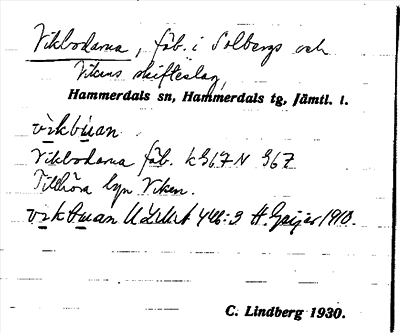 Vikbodarna, fäb. i Solbergs och
Vikens skifteslag,
Hammerdals sn, Hammerdals tg, Jämtl. l.
vikbúan
Vikbodarna fäb. k 367 N 367
Tillhöra byn Viken.
vikbuan ULMA 446:3 H. Geijer 1910.
C. Lindberg 1930.